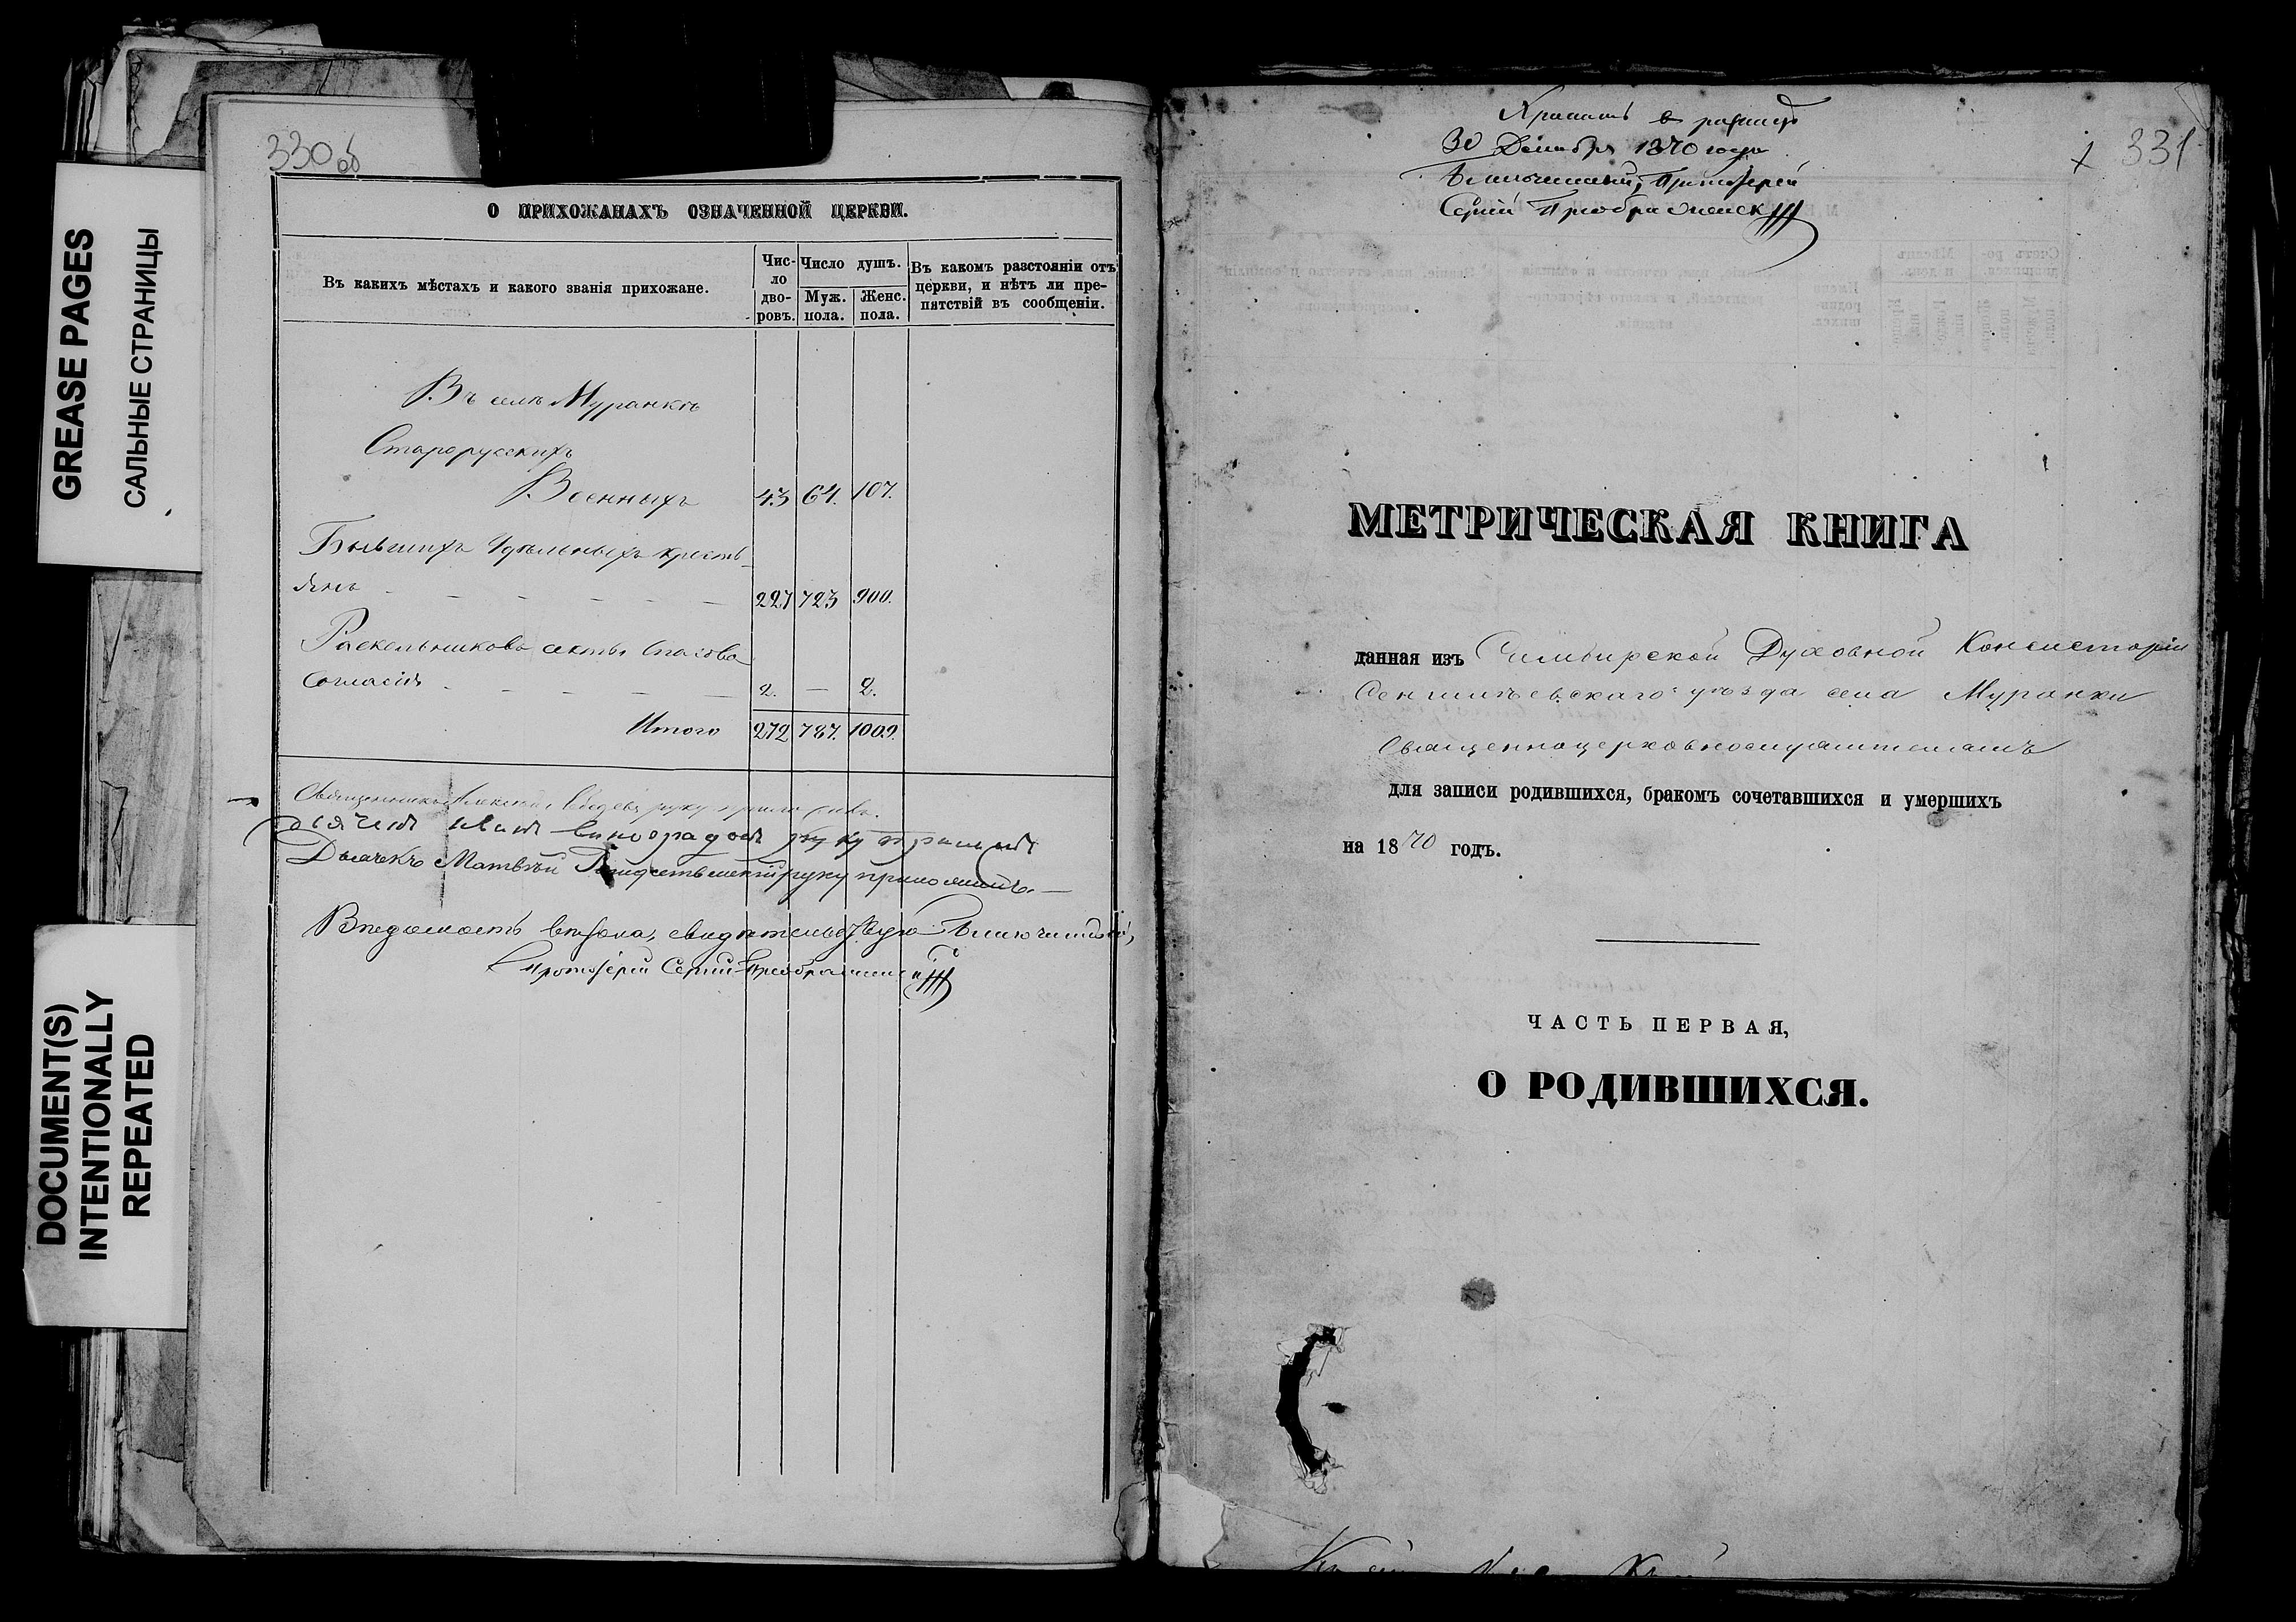 GREASE PAGES
САЛЬНЫЕ СТРАНИЦЫ
DOCUMENT(S)
INTENTIONALLY
REPEATED
330 об
О ПРИХОЖАНАХЪ ОЗНАЧЕННОЙ ЦЕРКВИ.
Въ какихъ мѣстахъ и какого званія прихожане.
Чис-
ло
дво-
ровъ.
Число душъ.
Муж.
пола.
Женс.
пола.
Въ какомъ разстояніи отъ
церкви, и нѣтъ ли пре-
пятствій въ сообщеніи.
Въ селѣ Муранкѣ
Старорусскихъ
Военныхъ 43 64. 107.
Бывшихъ Удѣльныхъ кресть-
янъ - - - - - - 227 723 900.
Раскольниковъ секты Спасова
Согласія - - - - - - 2. - 2.
Итого 272 787. 1009.
Священникъ руку приложилъ.
руку
Дьячекъ Матвѣй Рождественскій руку приложилъ. —
Вѣдомость вѣрна, свидѣтельствую Благочинный,
Протоіерей Сергій Преображенскій
331
30 Декабря 1870 года
Благочинный, Протоіерей
Сергій Преображенск
МЕТРИЧЕСКАЯ КНИГА
данная изъ Симбирской Духовной Консисторіи
Сенгилѣевскаго уѣзда села Муранки
Священноцерковнослужителямъ
для записи родившихся, бракомъ сочетавшихся и умершихъ
на 1870 годъ.
ЧАСТЬ ПЕРВАЯ,
О РОДИВШИХСЯ.